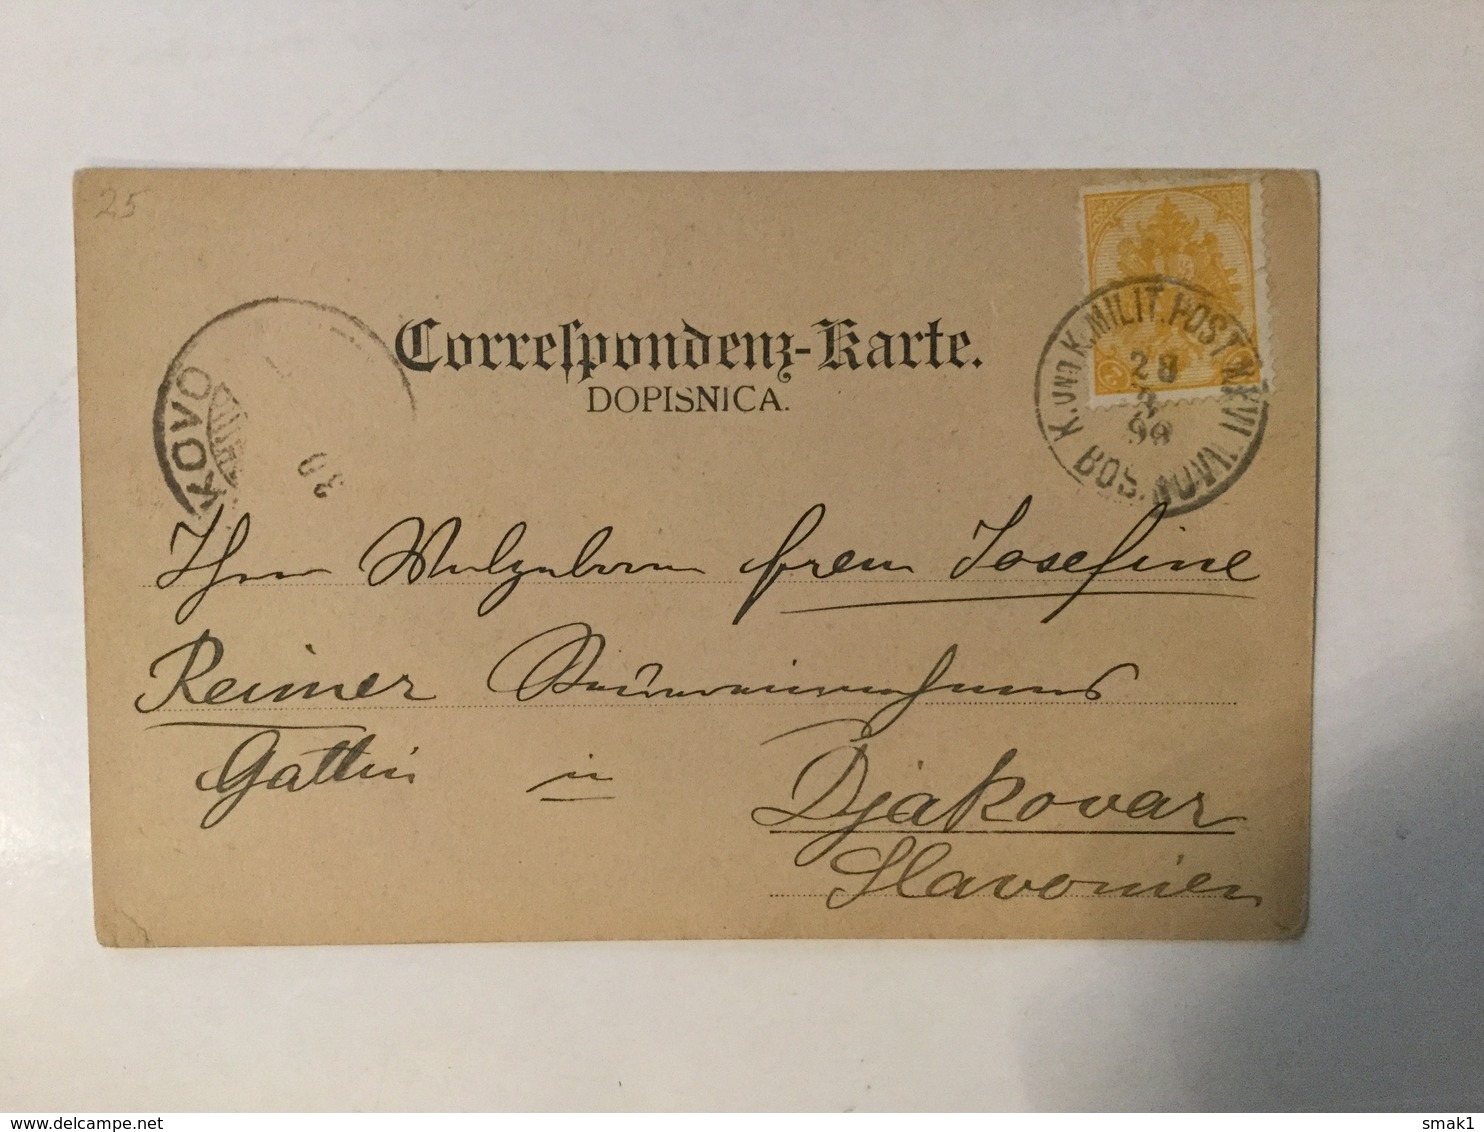 25
Correspondenz-Karte.
DOPISNICA.
K. UND K. MILIT. POST XXVI
28
98
BOS. NOVI
KOVO
30
Josefine
Reimer
Gattin in Djakovar
Slavonien
delcampe.net
smak1